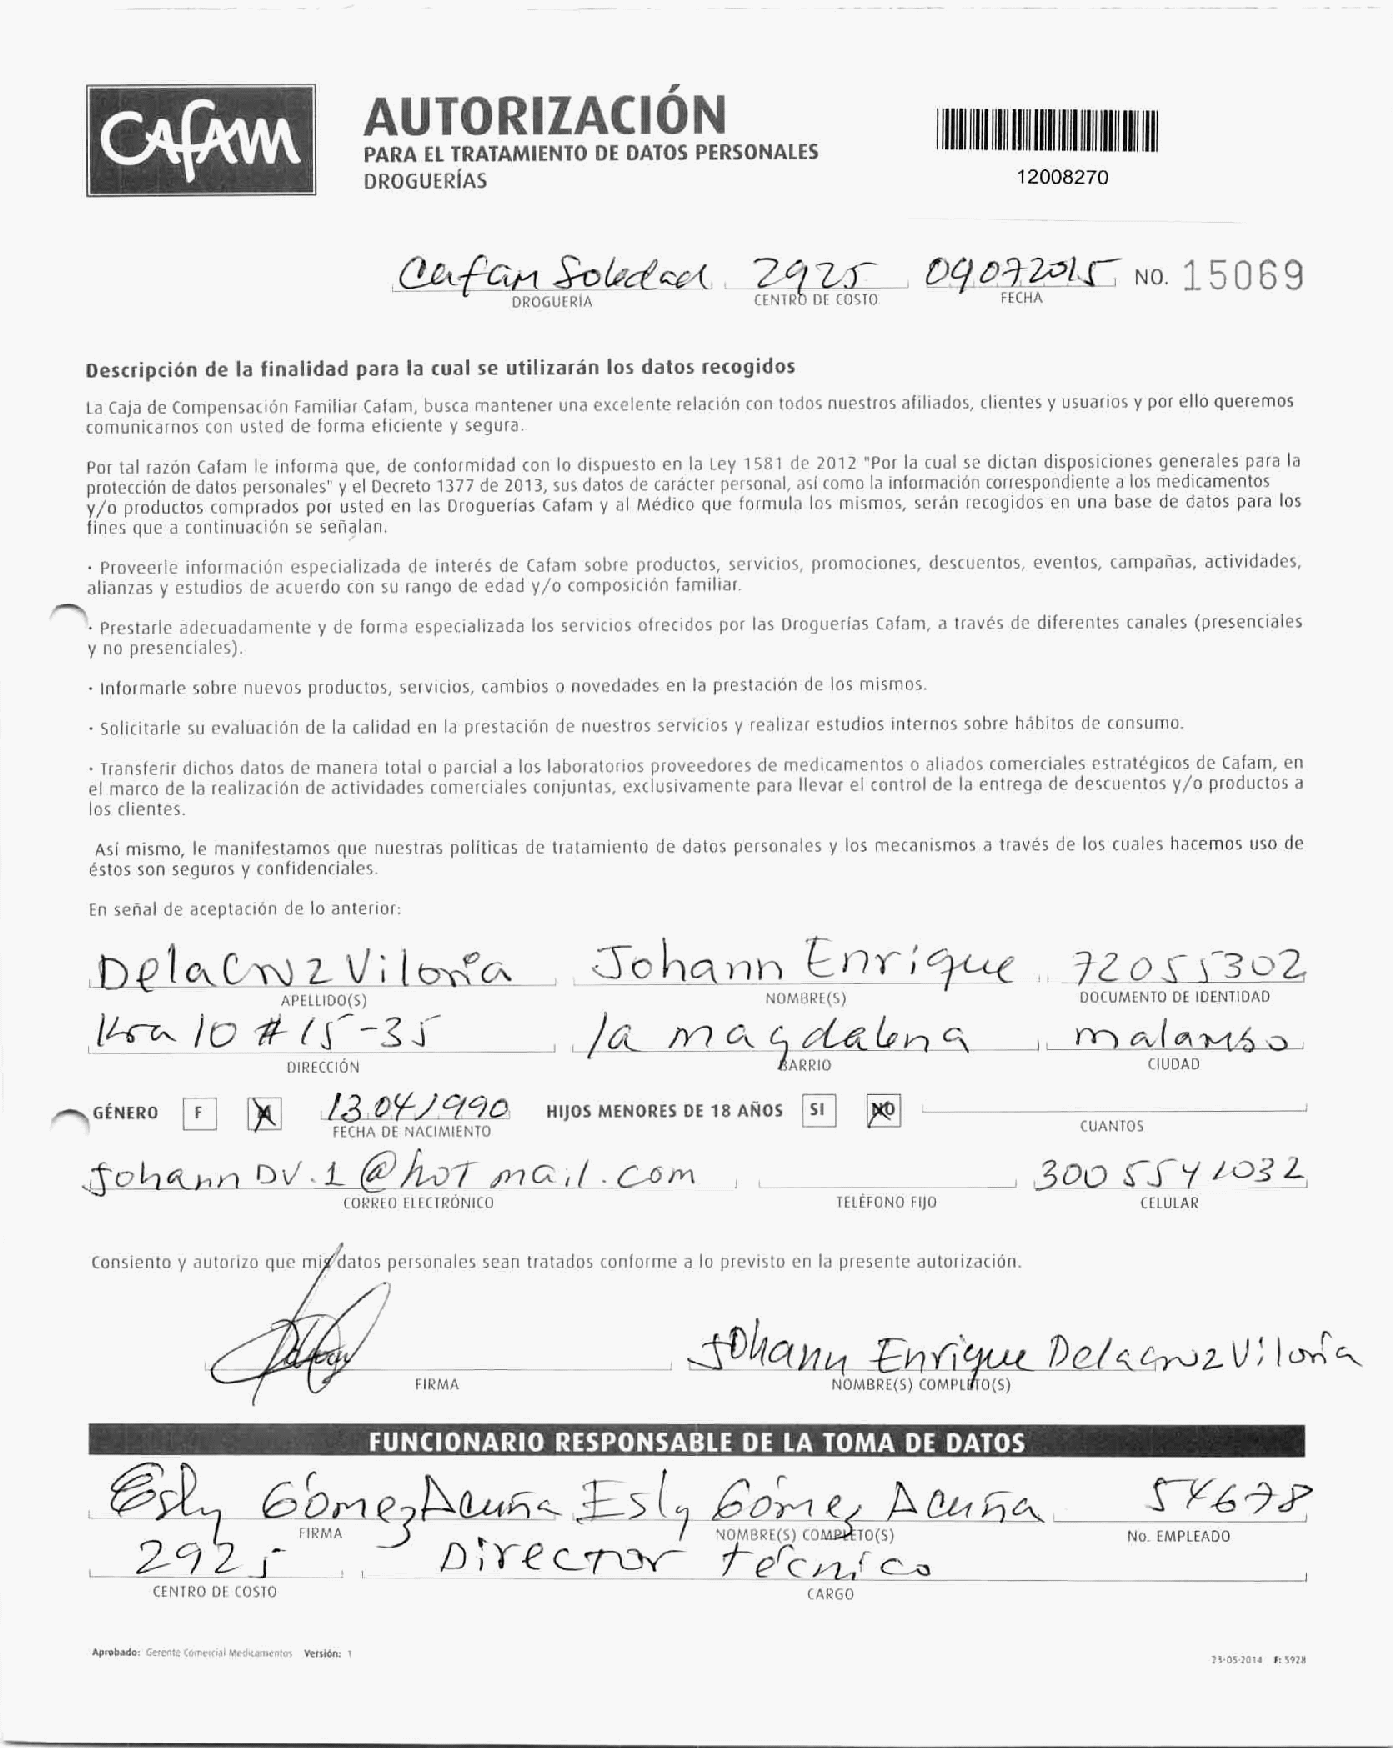 CAFAM
AUTORIZACIÓN
PARA EL TRATAMIENTO DE DATOS PERSONALES
DROGUERÍAS
12008270
Cafam Soledad 2925 09072015 NO. 15069
DROGUERÍA CENTRO DE COSTO FECHA
Descripción de la finalidad para la cual se utilizarán los datos recogidos
La Caja de Compensación Familiar Cafam, busca mantener una excelente relación con todos nuestros afiliados, clientes y usuarios y por ello queremos
comunicarnos con usted de forma eficiente y segura.
Por tal razón Cafam le informa que, de conformidad con lo dispuesto en la Ley 1581 de 2012 "Por la cual se dictan disposiciones generales para la
protección de datos personales" y el Decreto 1377 de 2013, sus datos de carácter personal, así como la información correspondiente a los medicamentos
y/o productos comprados por usted en las Droguerías Cafam y al Médico que formula los mismos, serán recogidos en una base de datos para los
fines que a continuación se señalan.
· Proveerle información especializada de interés de Cafam sobre productos, servicios, promociones, descuentos, eventos, campañas, actividades,
alianzas y estudios de acuerdo con su rango de edad y/o composición familiar.
· Prestarle adecuadamente y de forma especializada los servicios ofrecidos por las Droguerías Cafam, a través de diferentes canales (presenciales
y no presenciales).
· Informarle sobre nuevos productos, servicios, cambios o novedades en la prestación de los mismos.
· Solicitarle su evaluación de la calidad en la prestación de nuestros servicios y realizar estudios internos sobre hábitos de consumo.
· Transferir dichos datos de manera total o parcial a los laboratorios proveedores de medicamentos o aliados comerciales estratégicos de Cafam, en
el marco de la realización de actividades comerciales conjuntas, exclusivamente para llevar el control de la entrega de descuentos y/o productos a
los clientes.
Así mismo, le manifestamos que nuestras políticas de tratamiento de datos personales y los mecanismos a través de los cuales hacemos uso de
éstos son seguros y confidenciales.
En señal de aceptación de lo anterior:
Delacruz Viloria Johann Enrique 72055302
APELLIDO(S) NOMBRE(S) DOCUMENTO DE IDENTIDAD
Kra 10 # 15-35 la magdalena malambo
DIRECCIÓN BARRIO CIUDAD
GÉNERO F M 13041990 HIJOS MENORES DE 18 AÑOS SI NO
FECHA DE NACIMIENTO CUANTOS
JohannDV.1@hotmail.com 3005541032
CORREO ELECTRÓNICO TELÉFONO FIJO CELULAR
Consiento y autorizo que mis datos personales sean tratados conforme a lo previsto en la presente autorización.
Johann Enrique Delacruz Viloria
FIRMA NOMBRE(S) COMPLETO(S)
FUNCIONARIO RESPONSABLE DE LA TOMA DE DATOS
Esly Gómez Acuña Esly Gómez Acuña 54678
FIRMA NOMBRE(S) COMPLETO(S) No. EMPLEADO
2925 Director técnico
CENTRO DE COSTO CARGO
Aprobado: Gerente Comercial Medicamentos Versión: 1
23-05-2014 F: 5928